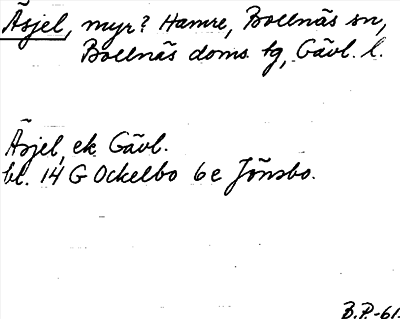 Äsjel, myr? Hamre, Bollnäs sn,
Bollnäs doms. tg, Gävl. l.
Äsjel, ek. Gävl.
bl. 14 G Ockelbo 6 e Jönsbo.
B.P.-61.